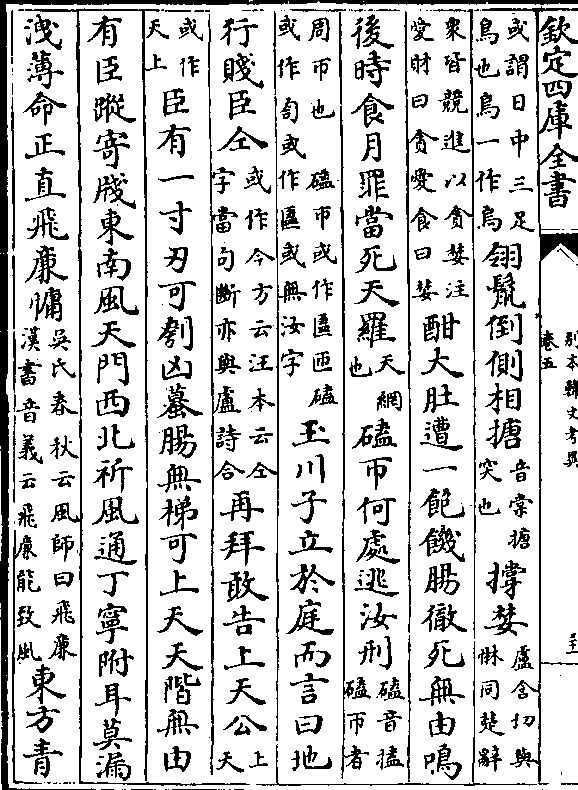 欽定四庫全書
別本韓文考異
卷五
或謂日中三足烏也烏一作鳥翎鬣倒側相搪音棠搪突也撐婪盧含切與惏同楚辭
衆皆競進以貪婪注愛財曰貪愛食曰婪酣大肚遭一飽饑腸徹死無由鳴
後時食月罪當死天羅天網也磕帀何處逃汝刑磕音搕磕帀者
周帀也磕帀或作匼匝磕或作匌或作匼或無汝字玉川子立於庭而言曰地
行賤臣仝或作今方云汪本云仝字當句斷亦與盧詩合再拜敢告上天公上天
或作天上臣有一寸刃可刳凶蟇腸無梯可上天天階無由
有臣蹤寄牋東南風天門西北祈風通丁寧附耳莫漏
洩薄命正直飛廉慵吳氏春秋云風師曰飛廉漢書音義云飛廉能致風東方青